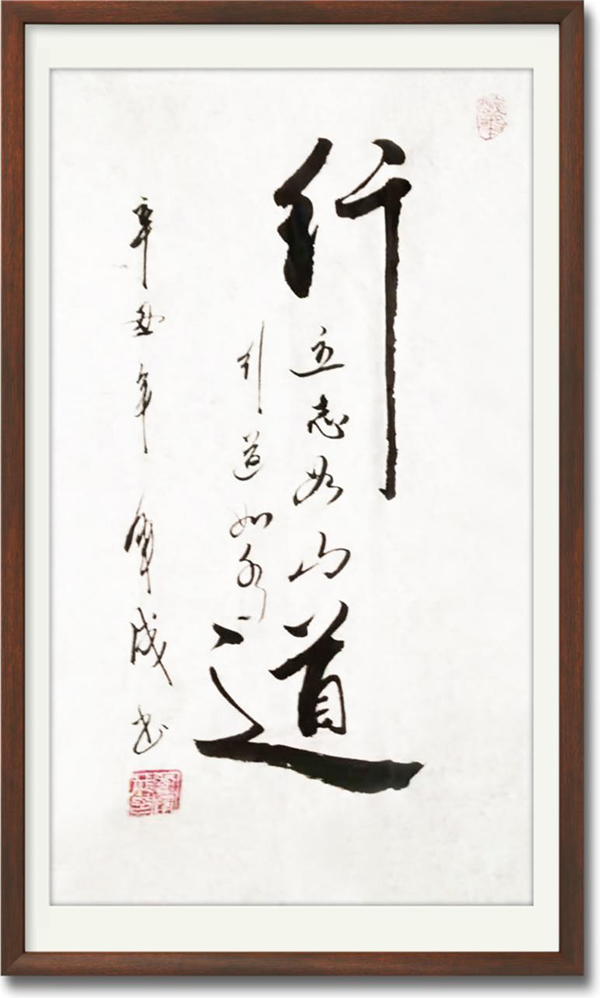 行道
立志如山
行道如水
辛丑年 成书